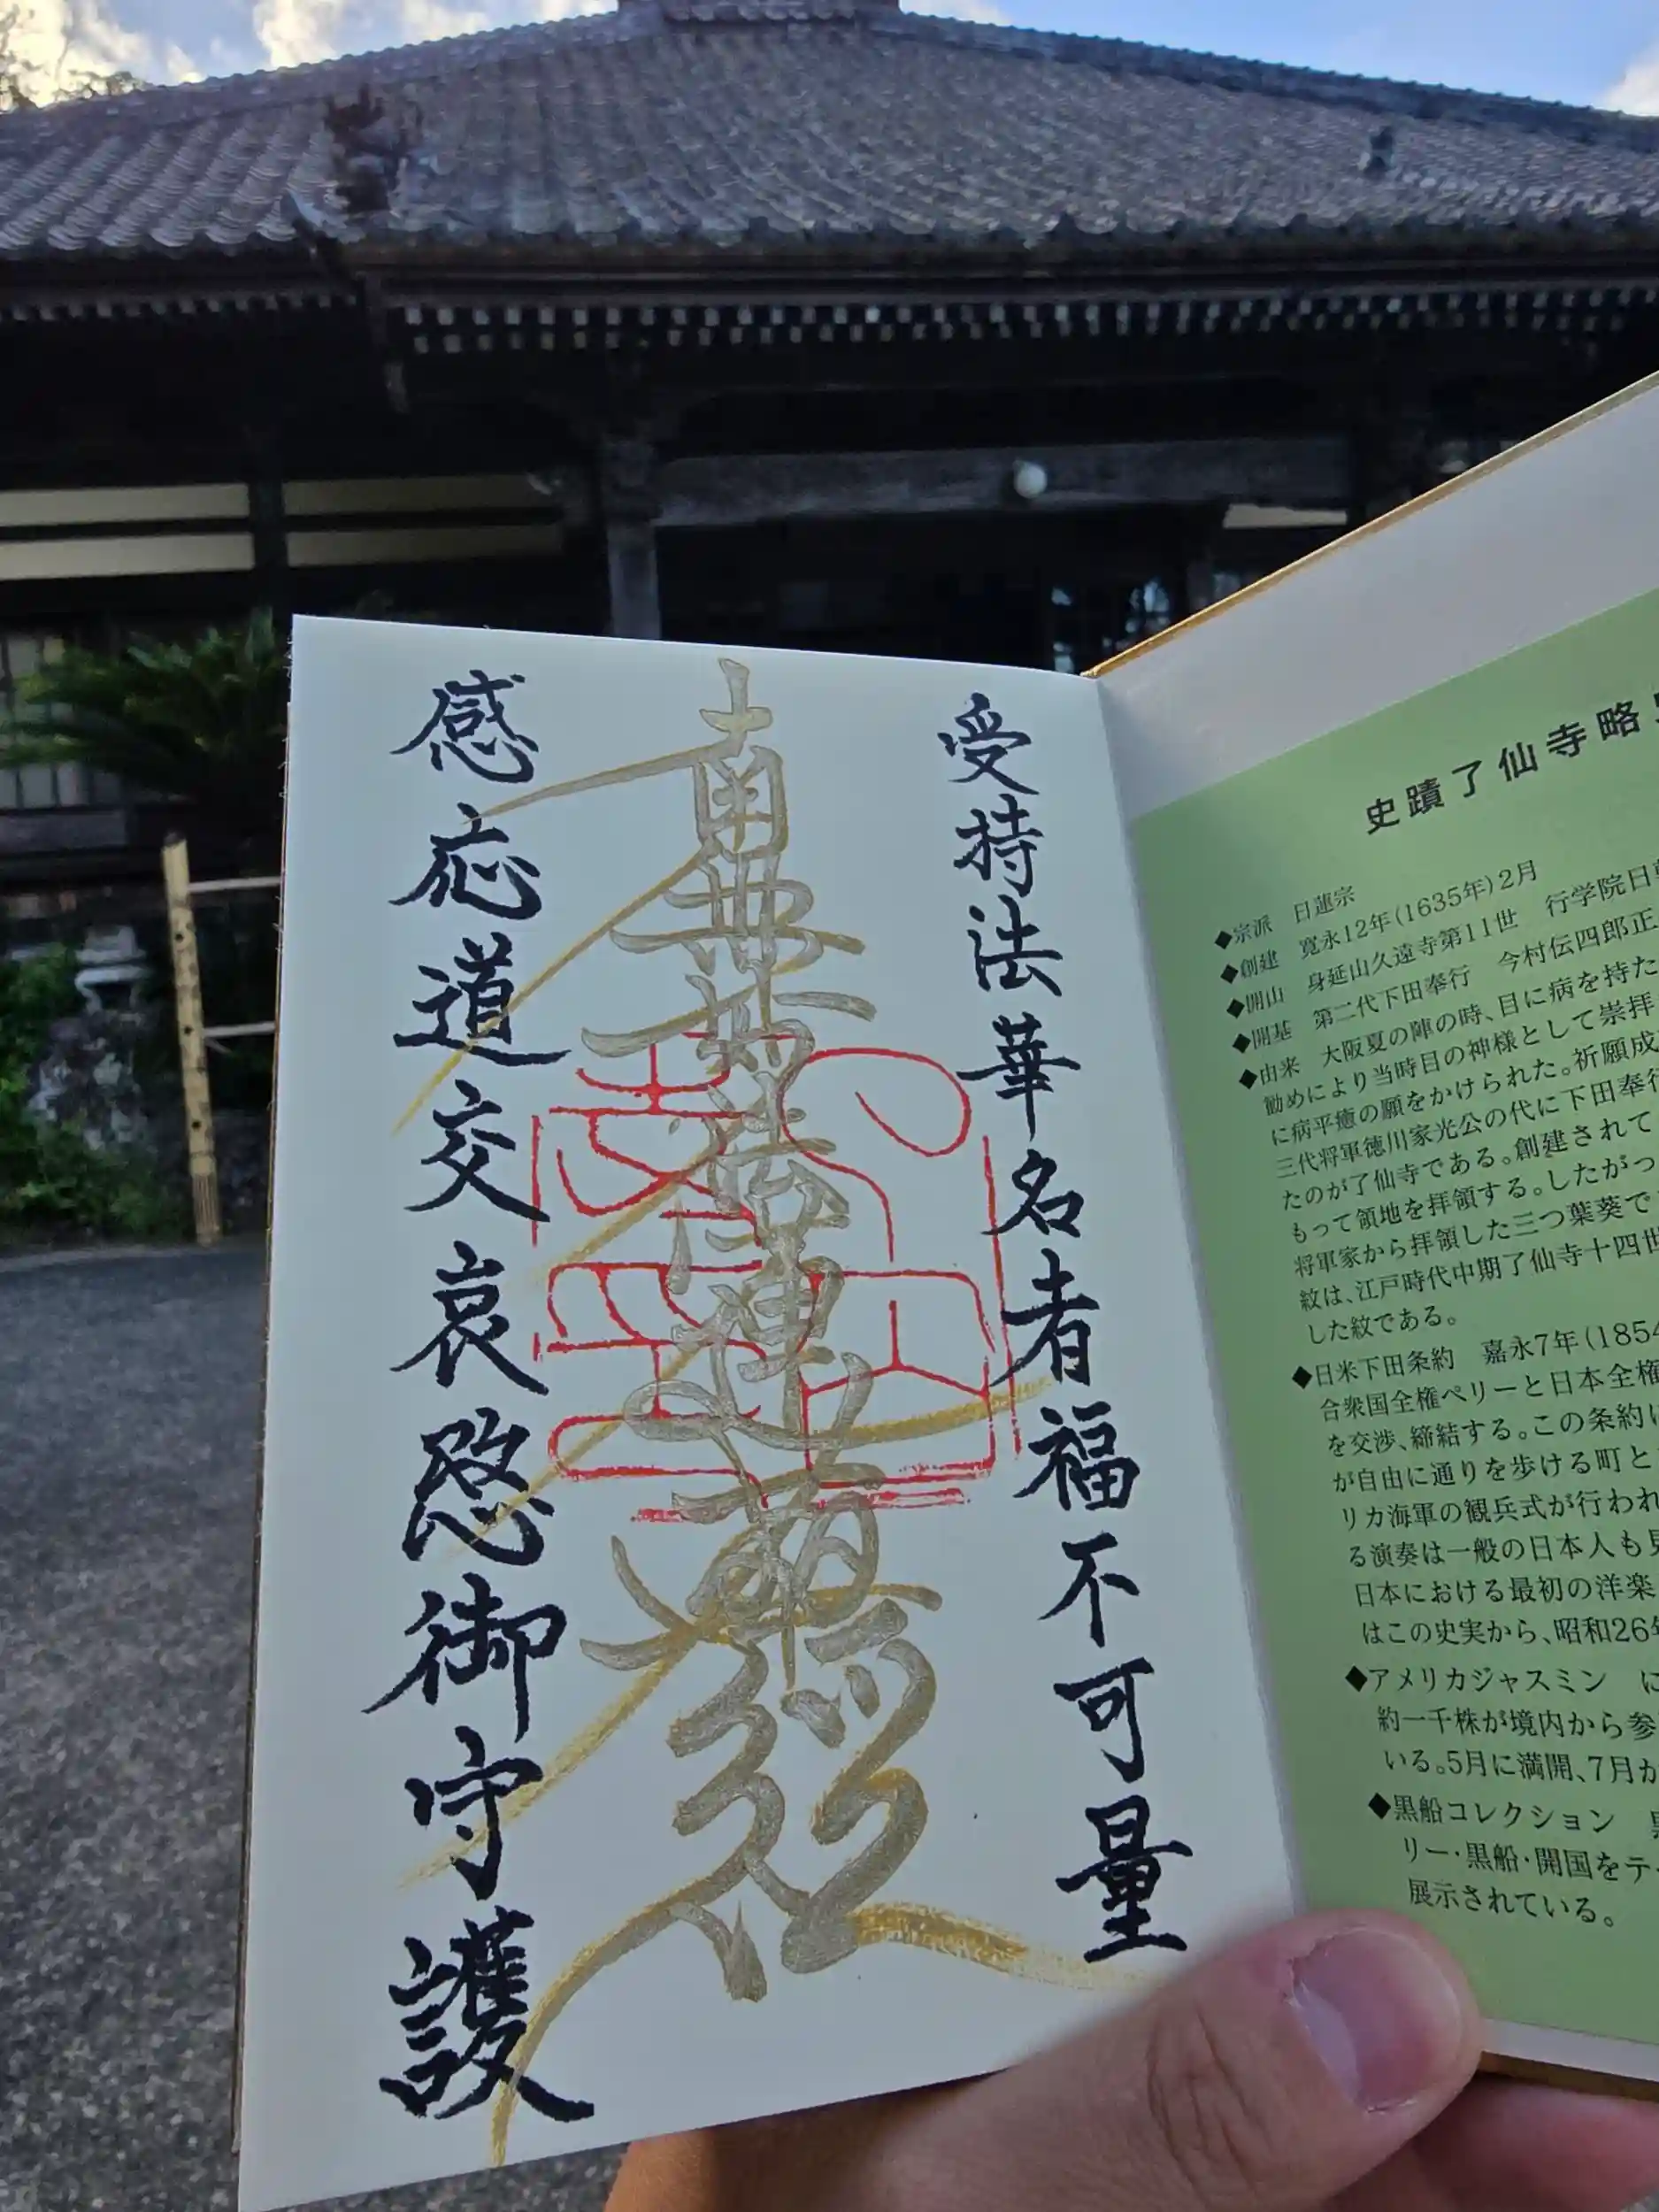 受持法華名者福不可量
南無妙法蓮華経
感応道交哀愍御守護
史蹟了仙寺略
◆宗派 日蓮宗
◆創建 寛永12年(1635年)2月
◆開山 身延山久遠寺第11世 行学院日朝
◆開基 第二代下田奉行 今村伝四郎正
◆由来 大阪夏の陣の時、目に病を持た
勧めにより当時目の神様として崇拝
に病平癒の願をかけられた。祈願成
三代将軍徳川家光公の代に下田奉行
たのが了仙寺である。創建されて
もって領地を拝領する。したがっ
将軍家から拝領した三つ葉葵で
紋は、江戸時代中期了仙寺十四世
した紋である。
◆日米下田条約 嘉永7年(1854
合衆国全権ペリーと日本全権
を交渉、締結する。この条約に
が自由に通りを歩ける町と
リカ海軍の観兵式が行われ
る演奏は一般の日本人も見
日本における最初の洋楽
はこの史実から、昭和26年
◆アメリカジャスミン に
約一千株が境内から参
いる。5月に満開、7月か
◆黒船コレクション 黒
リー・黒船・開国をテ
展示されている。